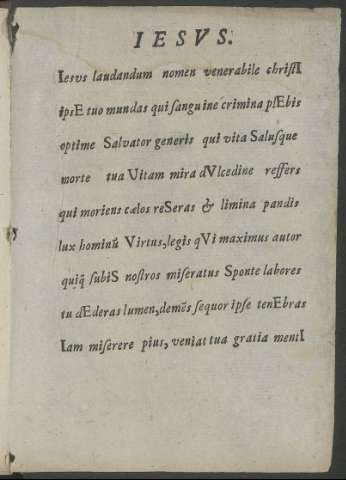 IESVS.
Iesus laudandum nomen venerabile chriſtI
ipsE tuo mundas qui ſanguine crimina plEbis
optime Salvator generis qui vita Saluſque
morte tua Uitam mira dUlcedine reſſers
qui moriens cælos reSeras & limina pandis
lux hominũ Virtus, legis qVi maximus autor
quiq̃ ſubiS noſtros miſeratus Sponte labores
tu dEderas lumen, demõs ſequor ipſe tenEbras
Iam miſerere pius, veniat tua gratia mentI